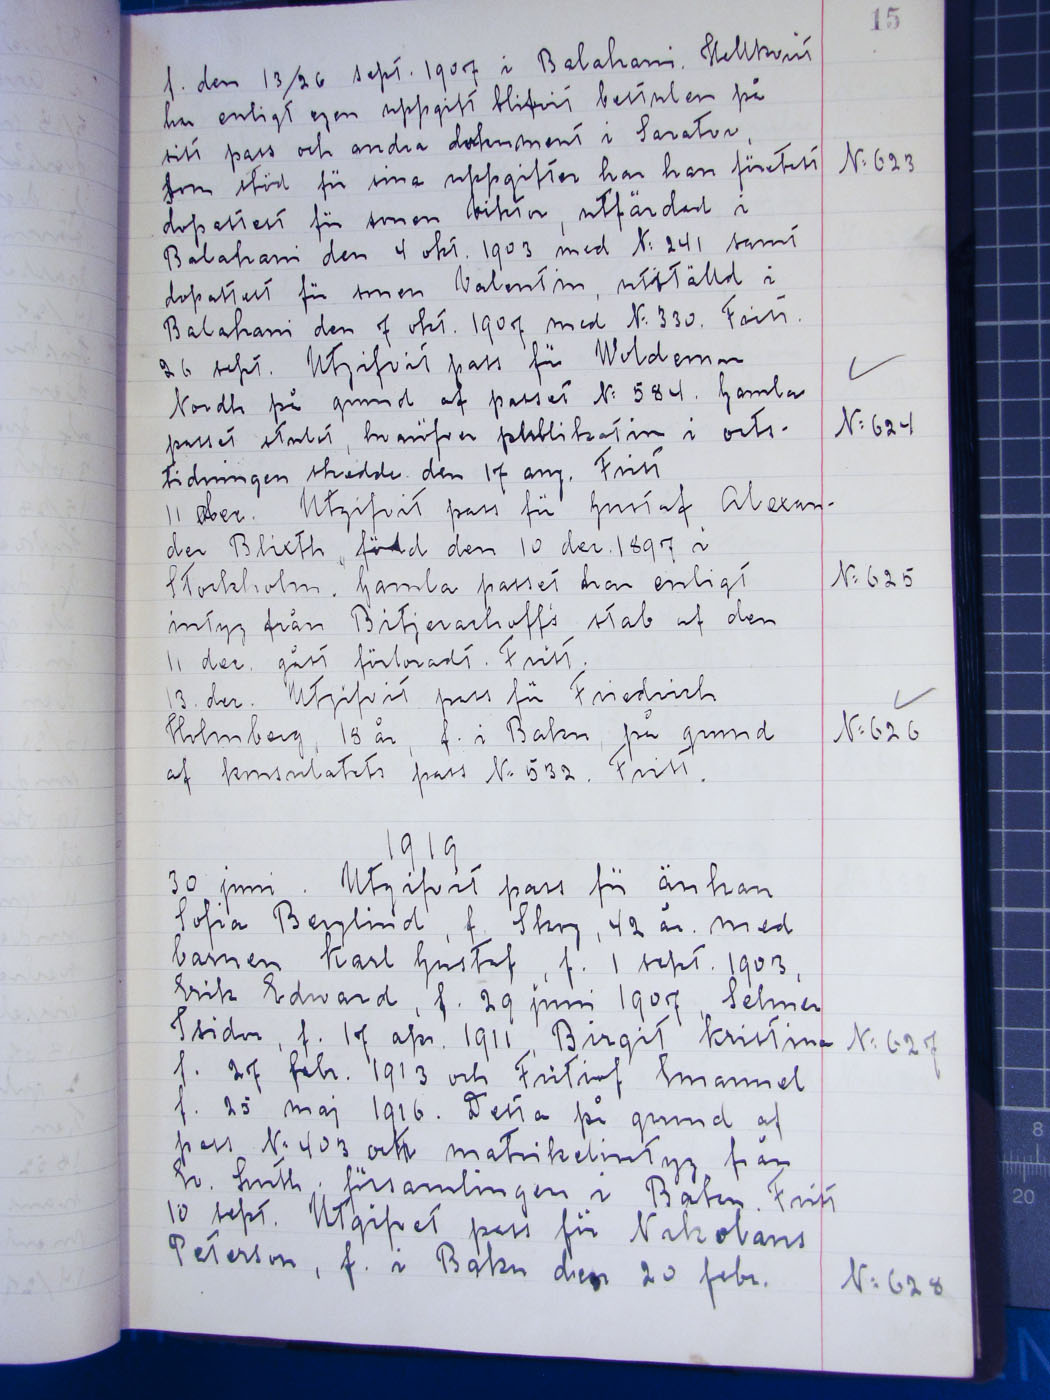 15
f. den 13/26 sept. 1907 i Balahani. Hellkvist
har enligt egen uppgift blifvit bestulen på
sitt pass och andra dokument i Saratov.
Som stöd för sina uppgifter har han företett N: 623
dopattest för sonen Viktor, utfärdad i
Balahani den 4 okt. 1903 med N: 241 samt
dopattest för sonen Valentin, utställd i
Balahani den 7 okt. 1907 med N: 330. Fritt.
26 sept. Utgifvit pass för Woldemar
Nordh på grund af passet N: 584. Gamla
passet stulet, hvaröfver publikation i orts- N: 624
tidningen skedde den 17 aug. Fritt
11 dec. Utgifvit pass för Gustaf Alexan-
der Blixth, född den 10 dec. 1897 i
Stockholm. Gamla passet har enligt N: 625
intyg från stab af den
11 dec. gått förloradt. Fritt.
13. dec. Utgifvit pass för Friedrich
Holmberg, 18 år, f. i Baku, på grund N: 626
af konsulatets pass N: 532. Fritt.
1919
30 juni. Utgifvit pass för änkan
Sofia Berglind, f. Skog, 42 år. med
barnen Karl Gustaf, f. 1 sept. 1903,
Erik Edward, f. 29 juni 1907, Selmer
Isidor, f. 17 apr. 1911, Birgit Kristina N: 627
f. 27 febr. 1913 och Fritiof Emanuel
f. 25 maj 1916. Detta på grund af
pass N: 403 och matrikelintyg från
Ev. Luth. församlingen i Baku. Fritt
10 sept. Utgifvet pass för Nikolaus
Peterson, f. i Baku den 20 febr. N: 628